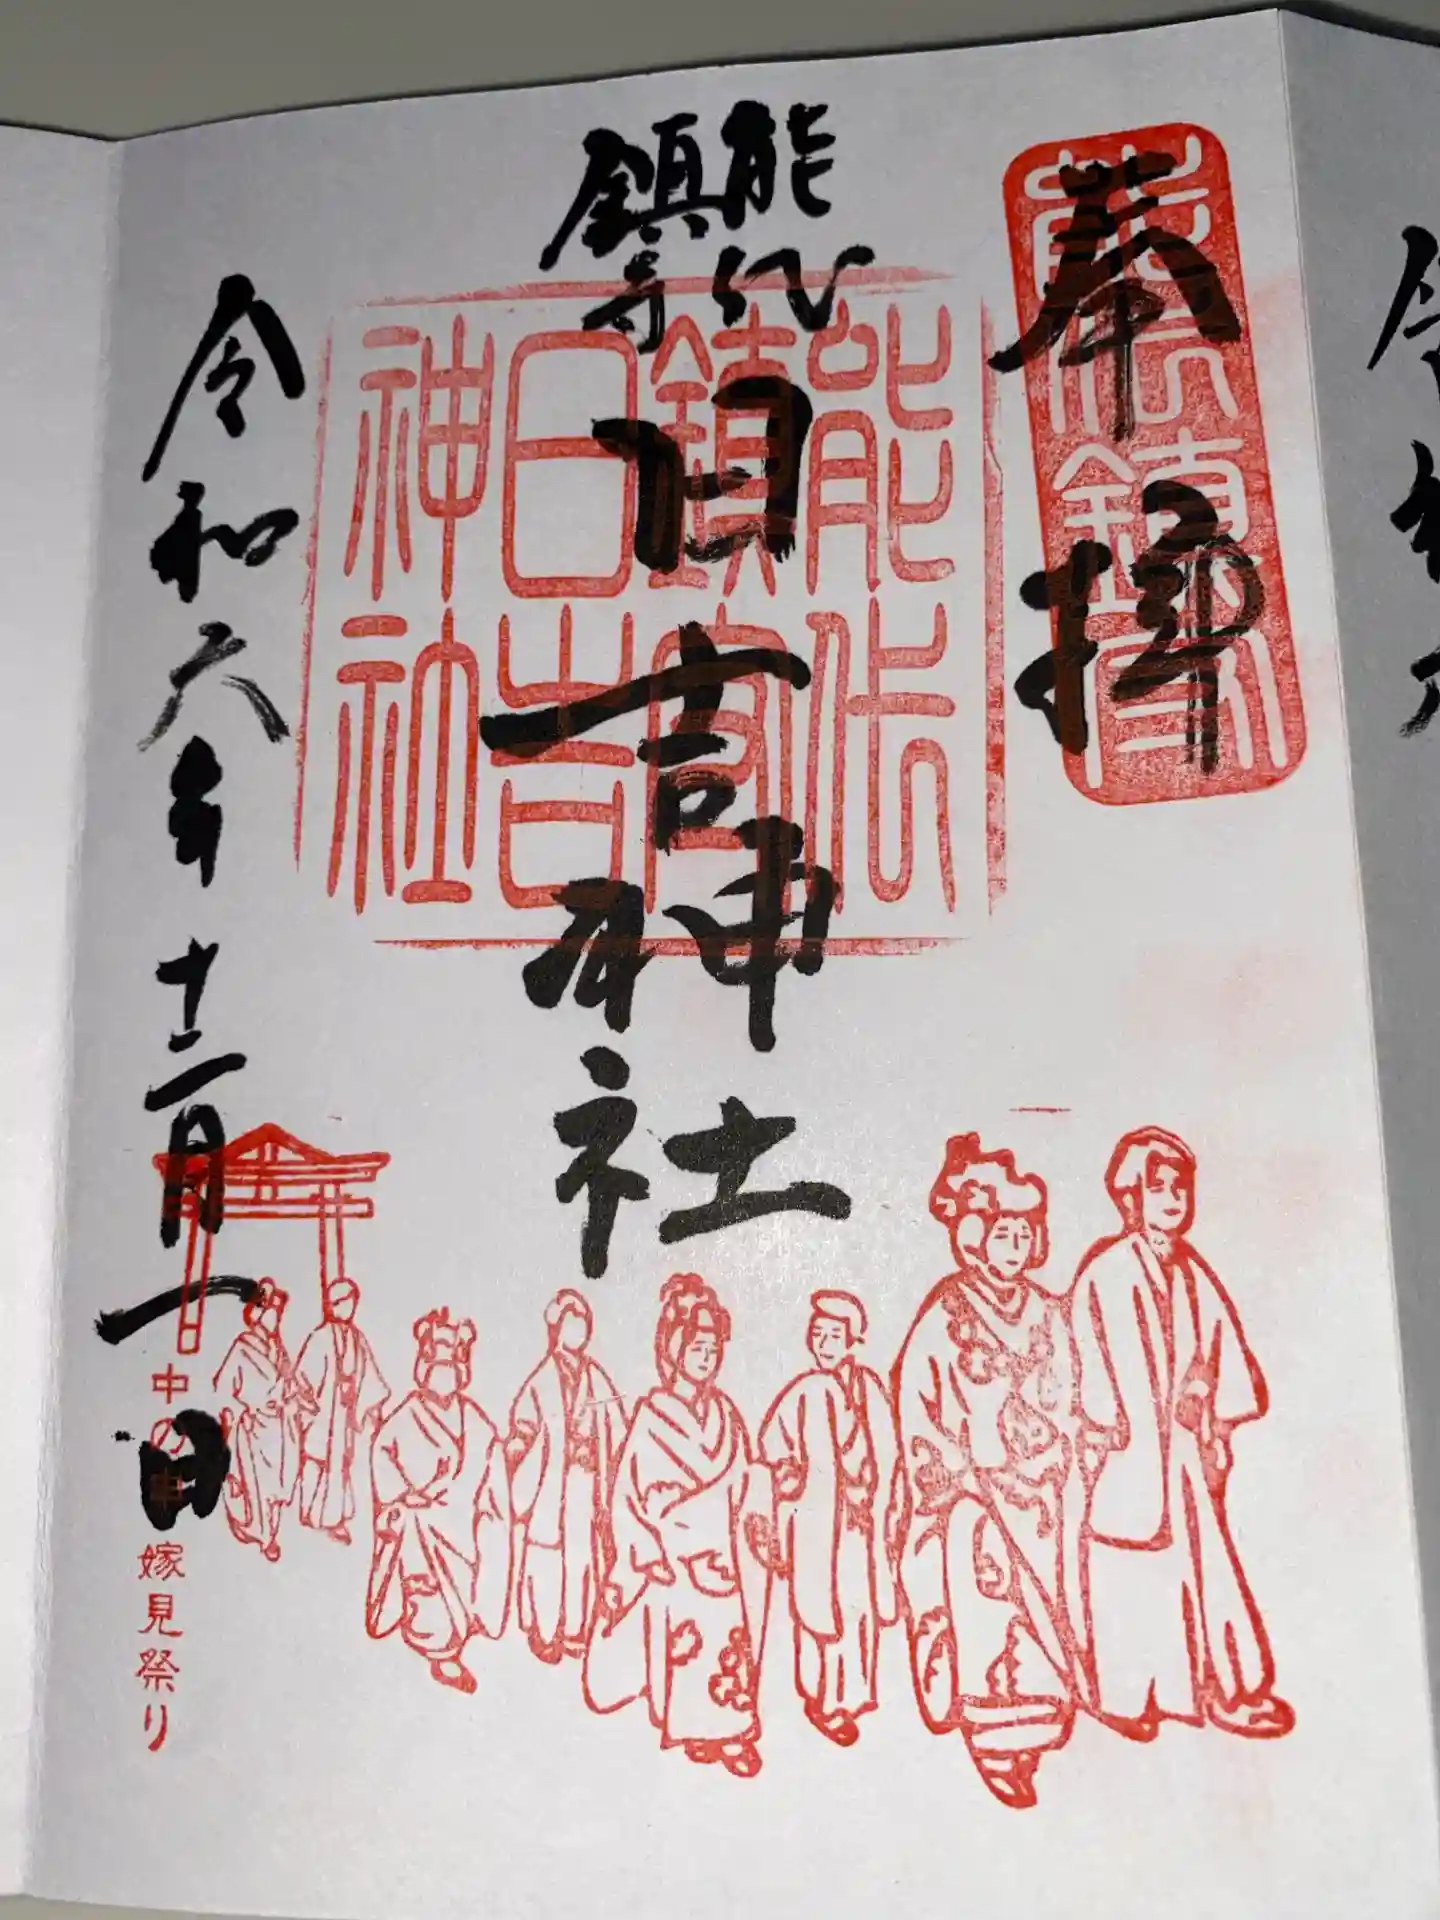 奉拝
能代鎮守
日吉神社
令和六年十二月一日
能代鎮守
能代
鎮守
日吉
神社
中の申
嫁見祭り